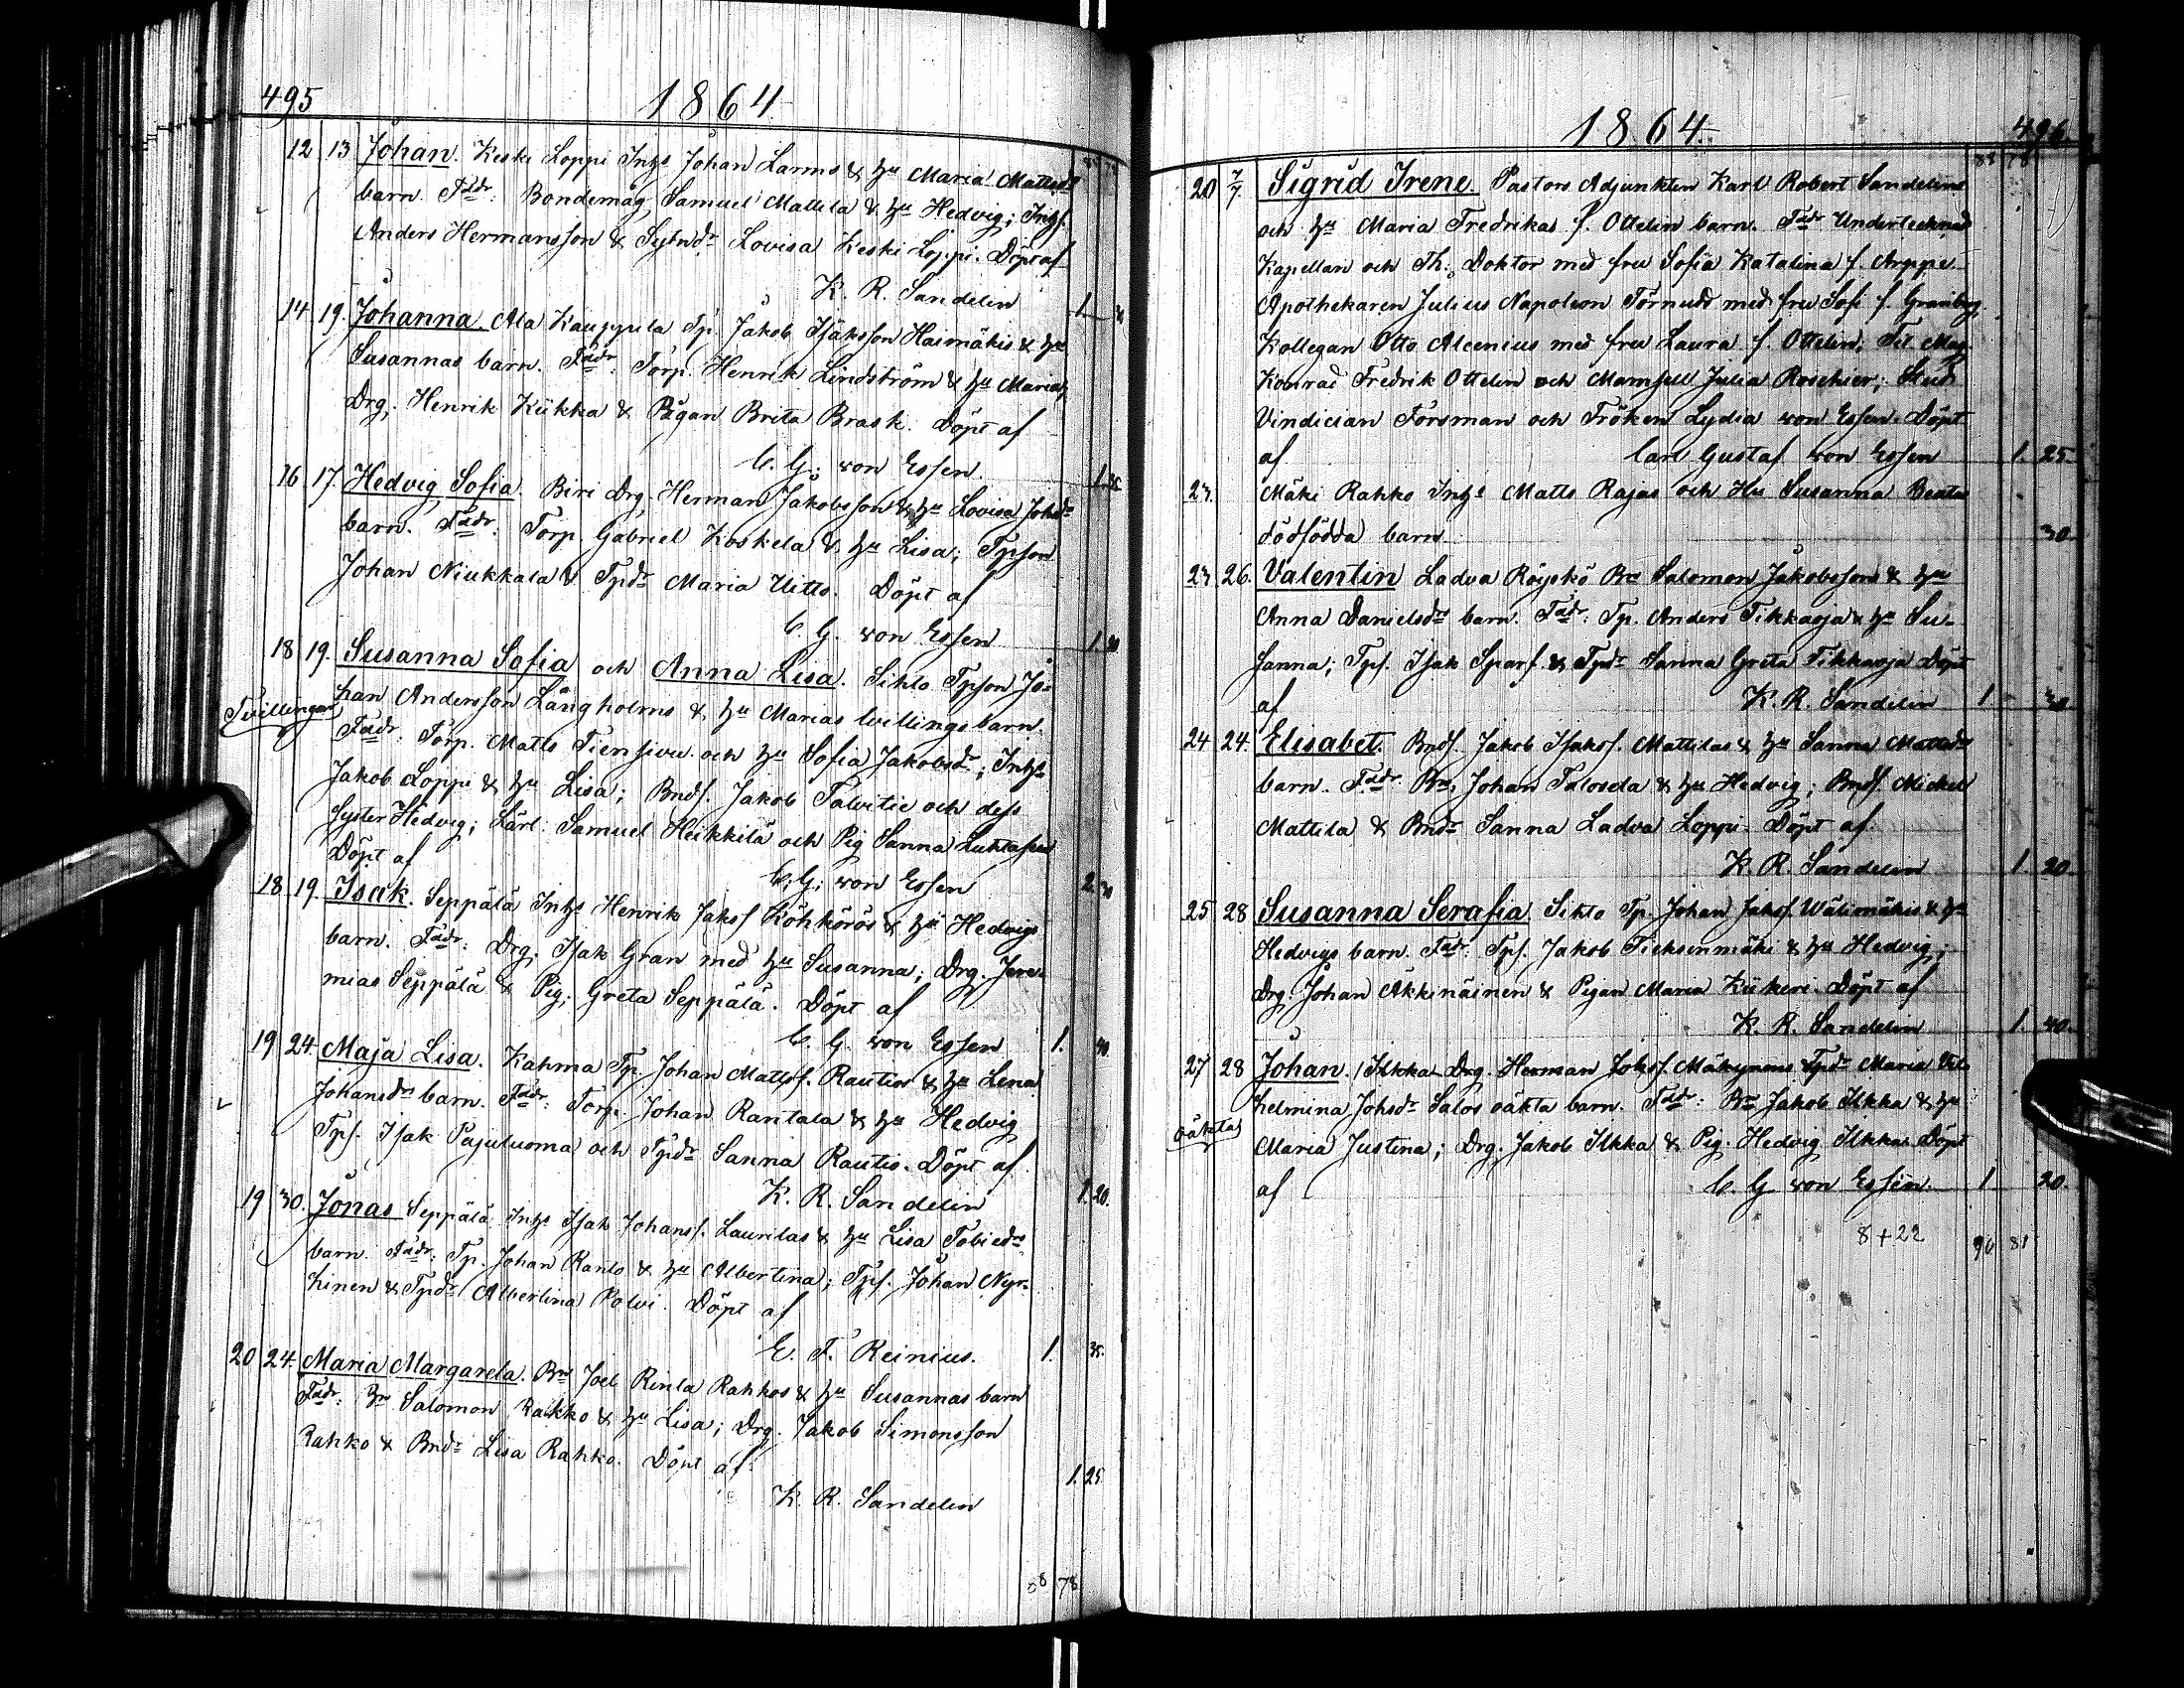 495
1864
12 13 Johan. Keski Loppi Inhs Johan Lamms & hu Maria Mattsdr
barn. Faddr: Bondemåg Samuel Mattila & hu Hedvig; Inhs.
Anders Hermansson & Sytndr Lovisa Keski Loppi. Döpt af
K. R. Sandelin 1
14 19. Johanna Ala Kauppila Tp. Jakob Isaksson Haimäkis & hu
Susannas barn. Faddr: Torp. Henrik Lindström & hu Maria;
Drg. Henrik Kiikka & Pigan Brita Brask. Döpt af
C. G. von Essen. 1
16 17. Hedvig Sofia. Biri Drg. Herman Jakobsson & hu Lovisa Johsdr
barn. Faddr: Torp. Gabriel Koskela & hu Lisa; Tpson
Johan Niukkala & Tpdr Maria Uitto. Döpt af
C. G. von Essen 1.
18 19. Susanna Sofia och Anna Lisa. Sihto Tpson Jo-
Tvillingar
han Andersson Långholms & hu Marias tvillingsbarn.
Faddr: Torp. Matts Tiensivu och hu Sofia Jakobsdr; Inhs
Jakob Loppi & hu Lisa; Bnds. Jakob Talvitie och dess
syster Hedvig; Kärl. Samuel Heikkilä och Pig Sanna
Döpt af
C. G. von Essen 2. 30
18 19. Isak. Seppälä Inhs Henrik Jaksf Köhkörös & hu Hedvigs
barn. Faddr: Drg. Isak Gran med hu Susanna; Drg. Jere-
mias Seppälä & Pig. Greta Seppälä. Döpt af
C. G. von Essen 1. 40.
19 24. Maja Lisa. Kahma Tp. Johan Mattsf. Rautios & hu Lena
Johansdrs barn. Faddr: Torp. Johan Rantala & hu Hedvig
Tps. Isak Pajuluoma och Tpdr Sanna Rautio. Döpt af
K. R. Sandelin 1. 20.
19 30. Jonas Seppälä Inhs Isak Johansf. Laurilas & hu Lisa Tobiedrs
barn. Faddr: Tp. Johan Ranto & hu Albertina; Tps. Johan Nyr-
hinen & Tpdr Albertina Polvi. Döpt af
E. F. Reinius. 1. 35.
20 24. Maria Margareta. Bn Joel Rinta Rahkos & hu Susannas barn
Faddr: Bn Salomon Rahko & hu Lisa; Drg. Jakob Simonsson
Rahko & Bndr Lisa Rahko. Döpt af
K. R. Sandelin 1. 25
78
1864.
496
20 7/7. Sigrid Irene. Pastors Adjunkten Karl Robert Sandelins
och hu Maria Fredrikas f. Ottelin barn. Faddr Undertecknad
Kapellan och Th. Doktor med fru Sofia Katalina f. Arppe.
Apothekaren Julius Napoleon Törnudd med fru Sofi f. Granberg
Kollegan Otto Alcenius med fru Laura f. Ottelin; Fil. Mag.
Konrad Fredrik Ottelin och Mamsell Julia Roschier; Stud
Vindician Forsman och Fröken Lydia von Essen. Döpt
af Carl Gustaf von Essen 1. 25.
23. Mäki Rahko Inhs Matts Rajas och Hu Susanna Beata
dödfödda barn 30
23. 26. Valentin Ladva Röyskö Bn Salomon Jakobssons & hu
Anna Danielsdrs barn. Faddr: Tp. Anders Tikkaoja & hu Su-
sanna; Tps. Isak Sparf & Tpdr Sanna Greta Tikkaoja Döpt
af K. R. Sandelin 1. 30
24 24. Elisabet. Bnds. Jakob Isaksf. Mattilas & hu Sanna Mattsdr
barn. Faddr. Bn Johan Talosela & hu Hedvig; Bnds. Mickel
Mattila & Bndr Sanna Ladva Loppi. Döpt af
K. R. Sandelin 1. 20
25 28 Susanna Serafia. Sihto Tp. Johan Jaksf. Wälimäkis & hu
Hedvigs barn. Faddr: Tps. Jakob Tieksenmäki & hu Hedvig;
Drg. Johan Äkkinäinen & Pigan Maria Kiikeri. Döpt af
K. R. Sandelin 1. 40.
27 28 Johan. Ilkka Drg. Herman Johsf. Mäkynens & Tpdr Maria Vil-
helmina Johsdr Salos oäkta barn. Faddr: Bn Jakob Ilkka & hu
oäkta
Maria Justina; Drg. Jakob Ilkka & Pig. Hedvig Ilkka. Döpt
af C. G. von Essen. 1 20.
8+22 96 81